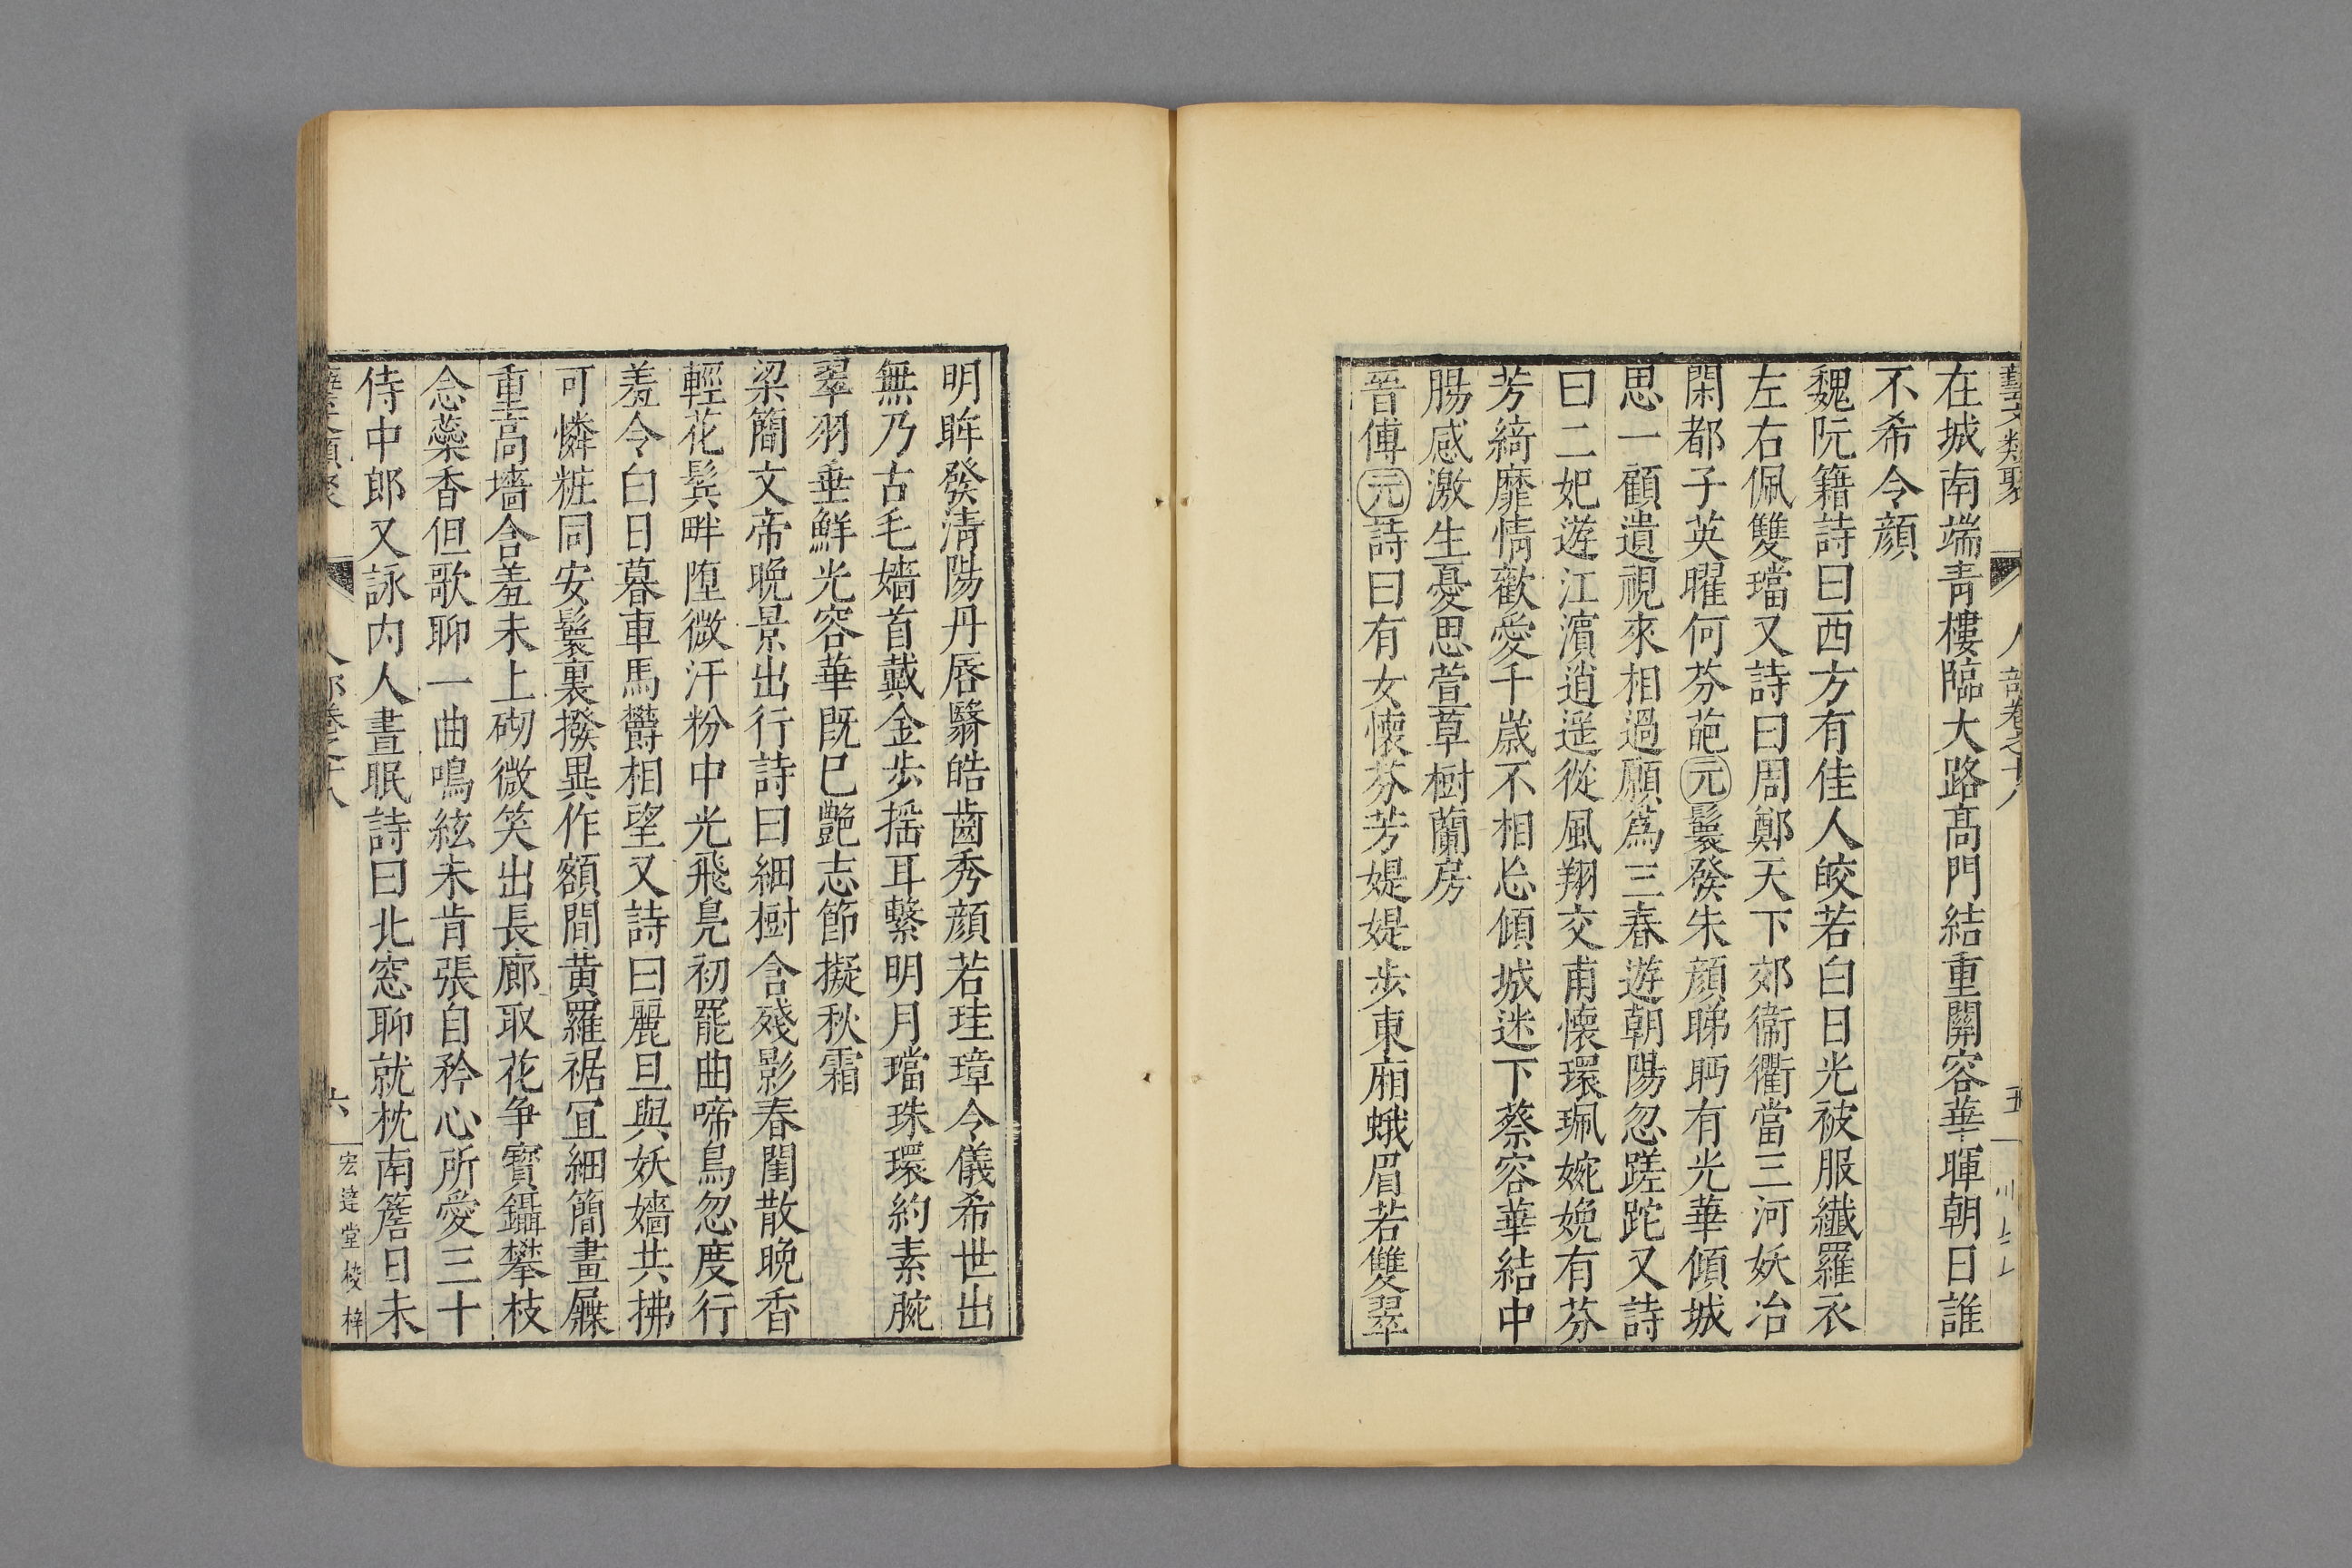 藝文類聚 人部卷之十八 五
在城南端青樓臨大路高門結重關容華暉朝日誰
不希令顔
魏阮籍詩曰西方有佳人皎若白日光被服纖羅衣
左右佩雙璫又詩曰周鄭天下郊衞衢當三河妖冶
閑都子英曜何芬葩元鬟發朱顔睇眄有光華傾城
思一顧遺視來相過願爲三春遊朝陽忽蹉跎又詩
曰二妃遊江濵逍遥從風翔交甫懷環珮婉娩有芬
芳綺靡情歡愛千嵗不相忘傾城迷下蔡容華結中
腸感激生憂思萱草樹蘭房
晉傅元詩曰有女懷芬芳媞媞步東廂蛾眉若雙翠
明眸發清陽丹唇翳皓齒秀顔若珪璋令儀希世出
無乃古毛嬙首戴金步摇耳繫明月璫珠環約素腕
翠羽垂鮮光容華旣已艷志節擬秋霜
梁簡文帝晚景出行詩曰細樹含殘影春閨散晚香
輕花鬂畔墮微汗粉中光飛鳧初罷曲啼烏忽度行
羞令白日暮車馬欝相望又詩曰麗旦與妖嬙共拂
可憐粧同安鬟裏撥異作額間黄羅裾宜細簡畫屧
重高墻含羞未上砌微笑出長廊取花争寳鑷攀枝
念蘂香但歌聊一曲鳴絃未肯張自矜心所愛三十
侍中郎又詠内人晝眠詩曰北窓聊就枕南簷日未
藝文類聚 人部卷之十八 六 宏達堂校梓